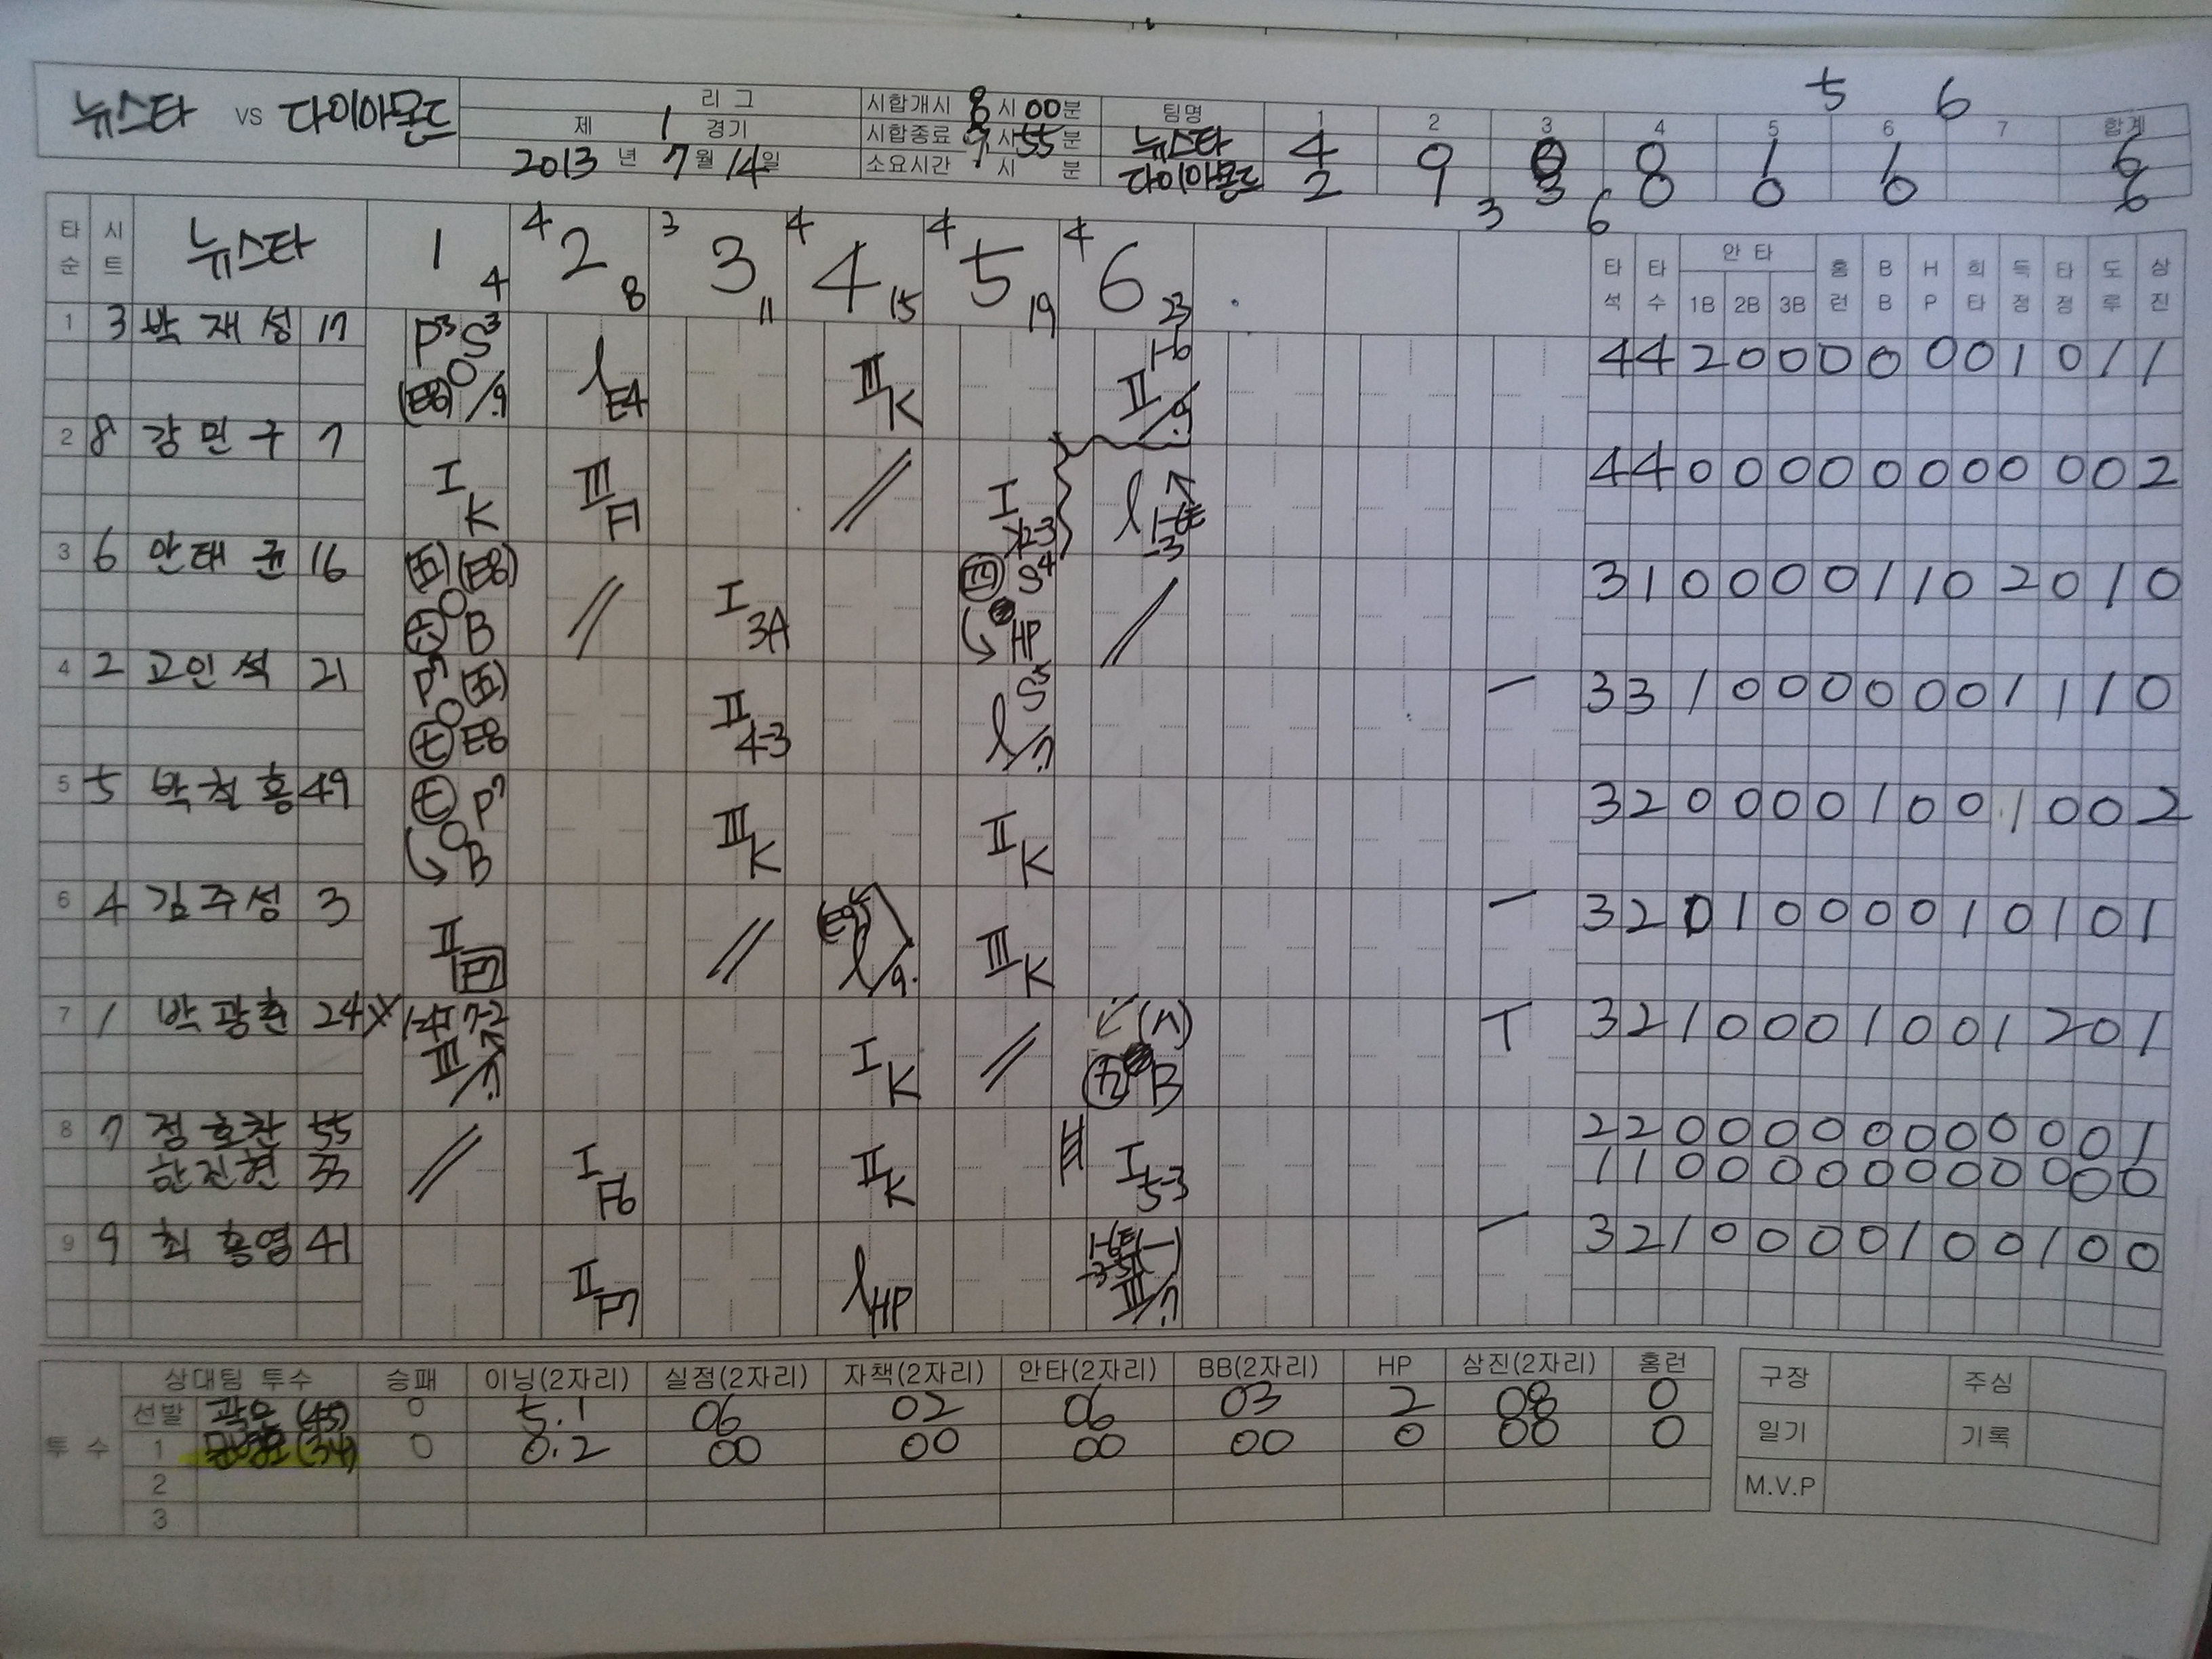 뉴스타 vs 다이아몬드
리 그
제 1 경기
2013 년 7 월 14 일
시합개시 8 시 00 분
시합종료 9 시 55 분
소요시간 시 분
5 6
팀명 1 2 3 4 5 6 7 합계
뉴스타 4 9 8 1 6
다이아몬드 2 9 3 8 0 6 6
3 6
타순 시트 뉴스타 1 4 4 2 8 3 3 11 4 4 15 4 5 19 4 6 23
타석 타수 안타 1B 2B 3B 홈런 BB HP 희타 득점 타점 도루 삼진
1 3 박재성 17 P3 S3 (E8) /9 l E4 III K II 1-6 /9 4 4 2 0 0 0 0 0 0 1 0 1 1
2 8 강민구 7 I K III F1 // I 2-3 l 1-6E -3 4 4 0 0 0 0 0 0 0 0 0 0 2
3 6 안태균 16 (五) (E8) B // I 3A S4 HP // 3 1 0 0 0 0 1 1 0 2 0 1 0
4 2 고인석 21 P7 (五) E8 II 4-3 S5 l /7 3 3 1 0 0 0 0 0 0 1 1 1 0
5 5 박철홍 49 P7 B III K II K 3 2 0 0 0 0 1 0 0 1 0 0 2
6 4 김주성 3 II F7 // l /9 III K 3 2 0 1 0 0 0 0 1 0 1 0 1
7 1 박광춘 24 7-2 III /7 I K // B 3 2 1 0 0 0 1 0 0 1 2 0 1
8 7 정호찬 55 // I F6 II K I 5-3 2 2 0 0 0 0 0 0 0 0 0 0 1
한진현 33 1 1 0 0 0 0 0 0 0 0 0 0 0
9 9 최홍영 41 II F7 l HP 1-6E III /7 3 2 1 0 0 0 0 1 0 0 1 0 0
투수 상대팀 투수 승패 이닝(2자리) 실점(2자리) 자책(2자리) 안타(2자리) BB(2자리) HP 삼진(2자리) 홈런
선발 (45) 0 5.1 06 02 06 03 2 08 0
1 (34) 0 0.2 00 00 00 00 0 00 0
2
3
구장 주심
일기 기록
M.V.P